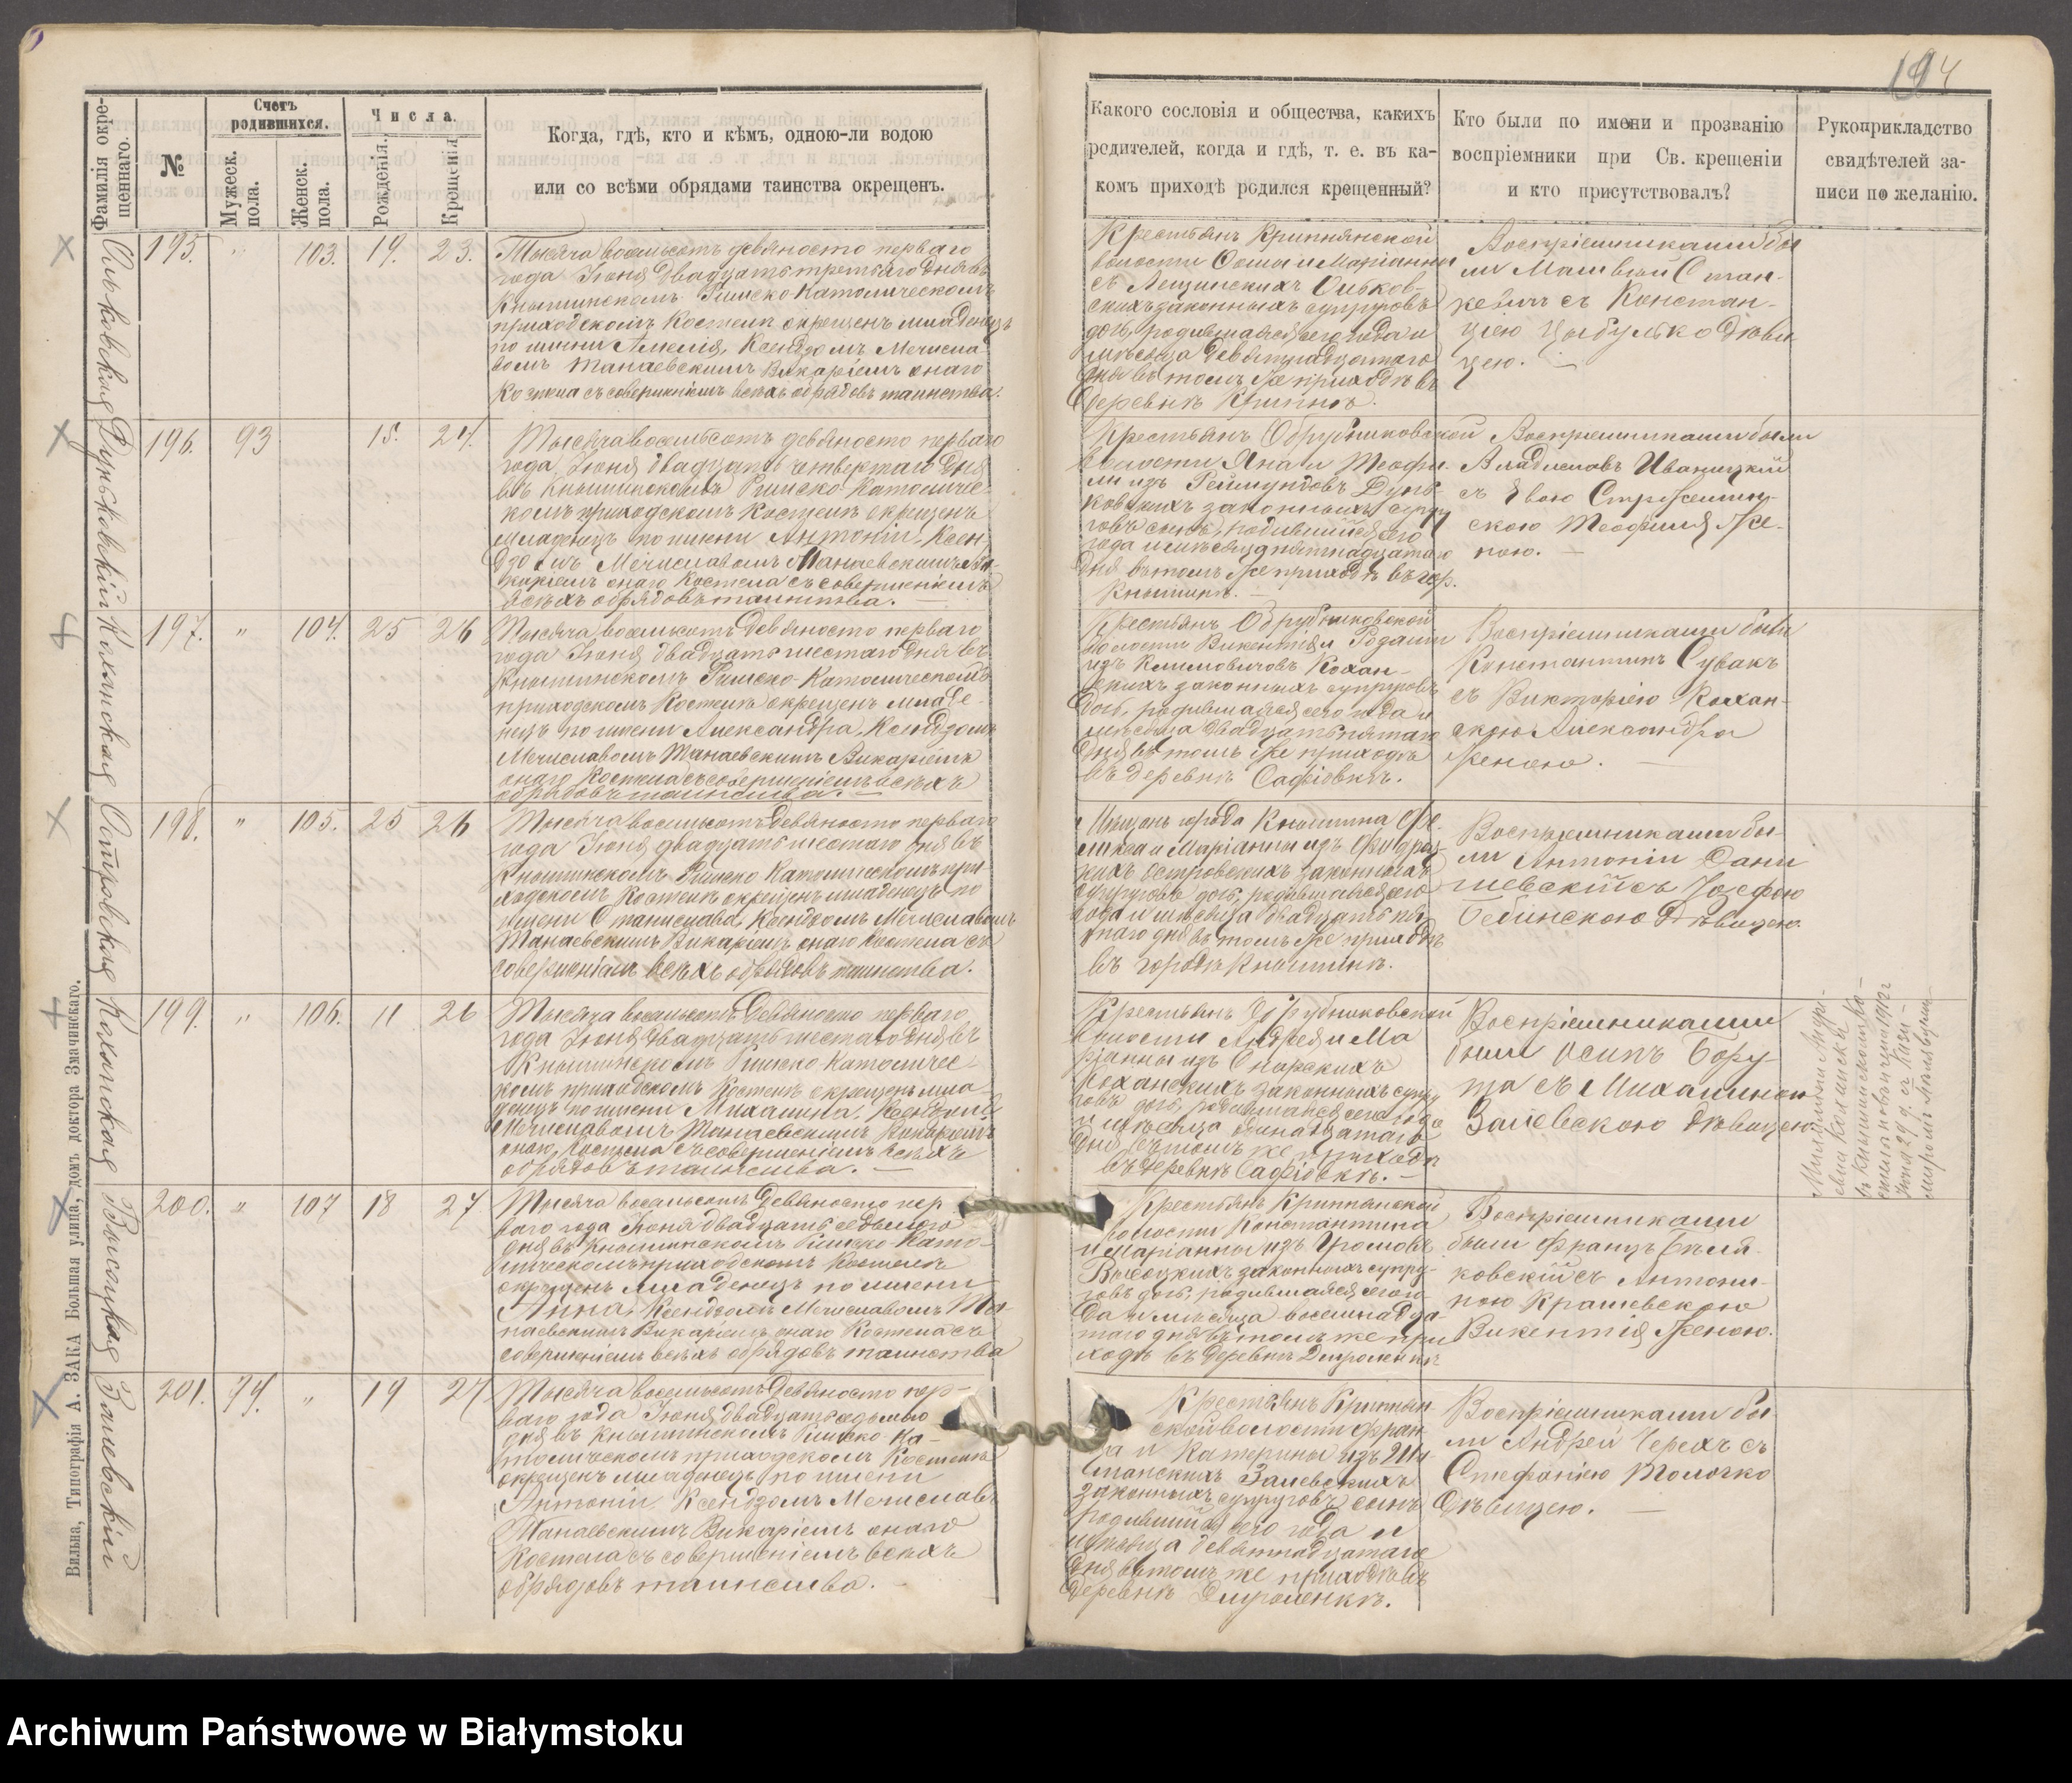 194
Фамилія окрещеннаго.
№
Счетъ родившихся.
Мужеск. пола.
Женск. пола.
Числа.
Рожденія.
Крещенія
Когда, гдѣ, кто и кѣмъ, одною-ли водою
или со всѣми обрядами таинства окрещенъ.
Какого сословія и общества, какихъ
родителей, когда и гдѣ, т. е. въ ка-
комъ приходѣ родился крещенный?
Кто были по имени и прозванію
воспріемники при Св. крещеніи
и кто присутствовалъ?
Рукоприкладство
свидѣтелей за-
писи по желанію.
195. " 103. 19. 23.
Тысяча восемьсотъ девяносто перваго
года Іюня двадцать третьяго дня въ
Кнышинскомъ Римско-Католическомъ
приходскомъ Костелѣ окрещенъ младенецъ
по имени Амелія, Ксендзомъ Мечисла-
вомъ Танаевскимъ Викаріемъ онаго
Костела съ совершеніемъ всѣхъ обрядовъ таинства.
Крестьянъ Крипнянской
волости Осипа и Маріанны
съ Лещинскихъ Ольков-
скихъ законныхъ супруговъ
дочь, родившаяся сего года и
мѣсяца девятнадцатаго
дня въ томъ же приходѣ въ
деревнѣ
Воспріемниками бы
ли Матвѣй Стан-
кевичъ съ Констан-
ціею Цыбулько дѣви
цею.
Дуньковскій
196. 93 15. 24.
Тысяча восемьсотъ девяносто перваго
года Іюня двадцать четвертаго дня
въ Кнышинскомъ Римско-Католичес-
комъ приходскомъ Костелѣ окрещенъ
младенецъ по имени Антоній, Ксен-
дзомъ Мечиславомъ Танаевскимъ Ви-
каріемъ онаго Костела съ совершеніемъ
всѣхъ обрядовъ таинства.
Крестьянъ Обрубниковской
волости Яна и Теофи-
ли изъ Реймундовъ Дунь-
ковскихъ законныхъ супру
говъ сынъ, родившійся сего
года и мѣсяца пятнадцатаго
дня въ томъ же приходѣ въ гор.
Кнышинѣ.
Воспріемниками были
Владиславъ Иваницкій
съ Евою
скою Теофиля же-
ною.
Коханская
197. " 104. 25 26
Тысяча восемьсотъ девяносто перваго
года Іюня двадцать шестаго дня въ
Кнышинскомъ Римско-Католическомъ
приходскомъ Костелѣ окрещенъ младе-
нецъ по имени Александра, Ксендзомъ
Мечиславомъ Танаевскимъ Викаріемъ
онаго Костела съ совершеніемъ всѣхъ
обрядовъ таинства.
Крестьянъ Обрубниковской
волости Викентія и
изъ Климовичовъ Кохан-
скихъ законныхъ супруговъ
дочь, родившаяся сего года и
мѣсяца двадцать пятаго
дня въ томъ же приходѣ
въ деревнѣ Сафіовкѣ.
Воспріемниками были
Константинъ Сувакъ
съ Викторіею Кохан-
скою Александра
женою.
Островская
198. " 105. 25 26
Тысяча восемьсотъ девяносто перваго
года Іюня двадцать шестаго дня въ
Кнышинскомъ Римско Католическомъ при-
ходскомъ Костелѣ окрещенъ младенецъ по
имени Станислава, Ксендзомъ Мечиславомъ
Танаевскимъ Викаріемъ онаго Костела съ
совершеніемъ всѣхъ обрядовъ таинства.
Мѣщанъ города Кнышина Фе-
ликса и Маріанны изъ
Островскихъ законныхъ
супруговъ дочь, родившаяся сего
года и мѣсяца двадцать пя
таго дня въ томъ же приходѣ
въ городѣ Кнышинѣ.
Воспріемниками бы-
ли Антоній Дани
левскій съ Іозефою
дѣвицею.
Коханская
199. " 106. 11 26
Тысяча восемьсотъ девяносто перваго
года Іюня двадцать шестаго дня въ
Кнышинскомъ Римско Католичес-
комъ приходскомъ Костелѣ окрещенъ мла-
денецъ по имени Михалина, Ксендзомъ
Мечиславомъ Танаевскимъ Викаріемъ
онаго Костела съ совершеніемъ всѣхъ
обрядовъ таинства.
Крестьянъ Обрубниковской
волости Андрея и Ма
ріанны изъ
Коханскихъ законныхъ супру
говъ дочь, родившаяся сего года
и мѣсяца одинадцатаго
дня въ томъ же приходѣ
въ деревнѣ Сафіовкѣ.
Воспріемниками
были Осипъ Бору-
та съ Михалиною
Залевскою дѣвицею.
Высоцкая
200. " 107 18 27
Тысяча восемьсотъ девяносто пер
ваго года Іюня двадцать седьмого
дня въ Кнышинскомъ Римско-Като-
лическомъ приходскомъ Костелѣ
окрещенъ младенецъ по имени
Анна, Ксендзомъ Мечиславомъ Та-
наевскимъ Викаріемъ онаго Костела съ
совершеніемъ всѣхъ обрядовъ таинства
Крестьянъ Крипнянской
волости Константина
и Маріанны изъ Громовъ
Высоцкихъ законныхъ супру-
говъ дочь, родившаяся сего го-
да и мѣсяца восемнадца-
таго дня въ томъ же при
ходѣ въ деревнѣ
Воспріемниками
были Францъ Беля-
ковскій съ Антони-
ною Крашевскою
Викентія женою.
Залевскій
201. 94. " 19 27
Тысяча восемьсотъ девяносто пер-
ваго года Іюня двадцать седьмаго
дня въ Кнышинскомъ Римско-Ка-
толическомъ приходскомъ Костелѣ
окрещенъ младенецъ по имени
Антоній Ксендзомъ Мечиславомъ
Танаевскимъ Викаріемъ онаго
Костела съ совершеніемъ всѣхъ
обрядовъ таинства.
Крестьянъ Крипнян
ской волости Фран
ца и Катерины изъ
Залевскихъ
законныхъ супруговъ сынъ
родившійся сего года и
мѣсяца девятнадцатаго
дня въ томъ же приходѣ въ
деревнѣ
Воспріемниками бы-
ли Андрей Черехъ съ
Стефаніею Толочко
дѣвицею.
Вильна, Типографія А. ЗАКА Большая улица, домъ доктора Змачинскаго.
Archiwum Państwowe w Białymstoku